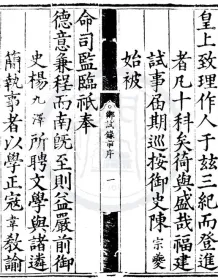 皇上致理作人于玆三紀而登進
者凡十科矣倚與盛哉福建
試事届期巡按御史陳宗夔
始被
鄉試錄前序
一
命司監臨祇奉
德意兼程而南既至則益嚴前御
史楊九澤所聘文學與諸遴
簡執事者以學正寇韋教諭